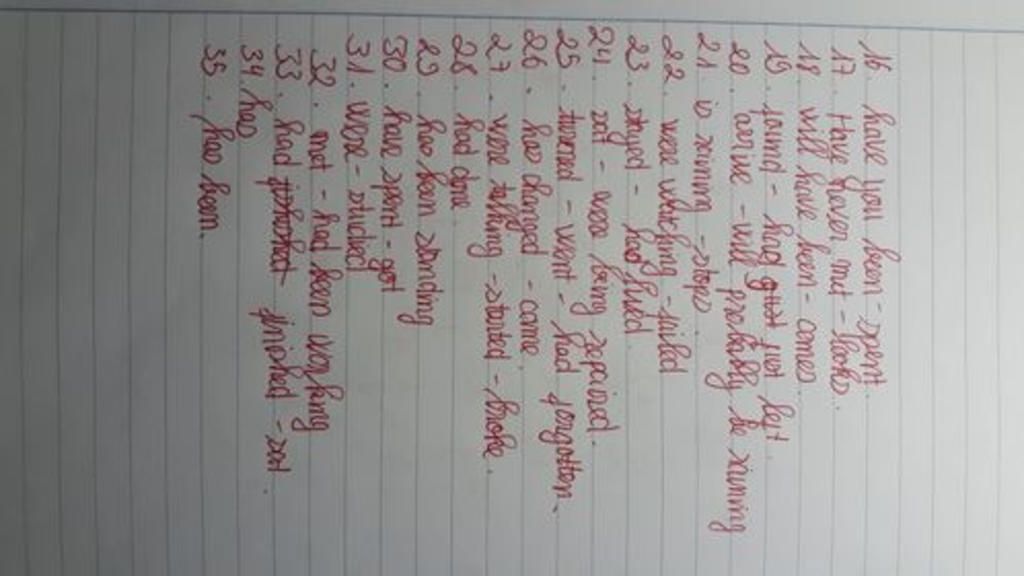 16. have you been - spent.
17. Have never met - looks.
18. will have been - comes
19. found - had just left.
20. arrive - will probably be raining
21. is raining - stops
22. were watching - failed
23. stayed - had lived
24. sat - were being repaired.
25. turned - went - had forgotten.
26. has changed - came
27. were talking - started - broke.
28. had done.
29. has been standing
30. have spent - got
31. were - studied
32. met - had been working
33. had finished - sat.
34. has
35. has been.